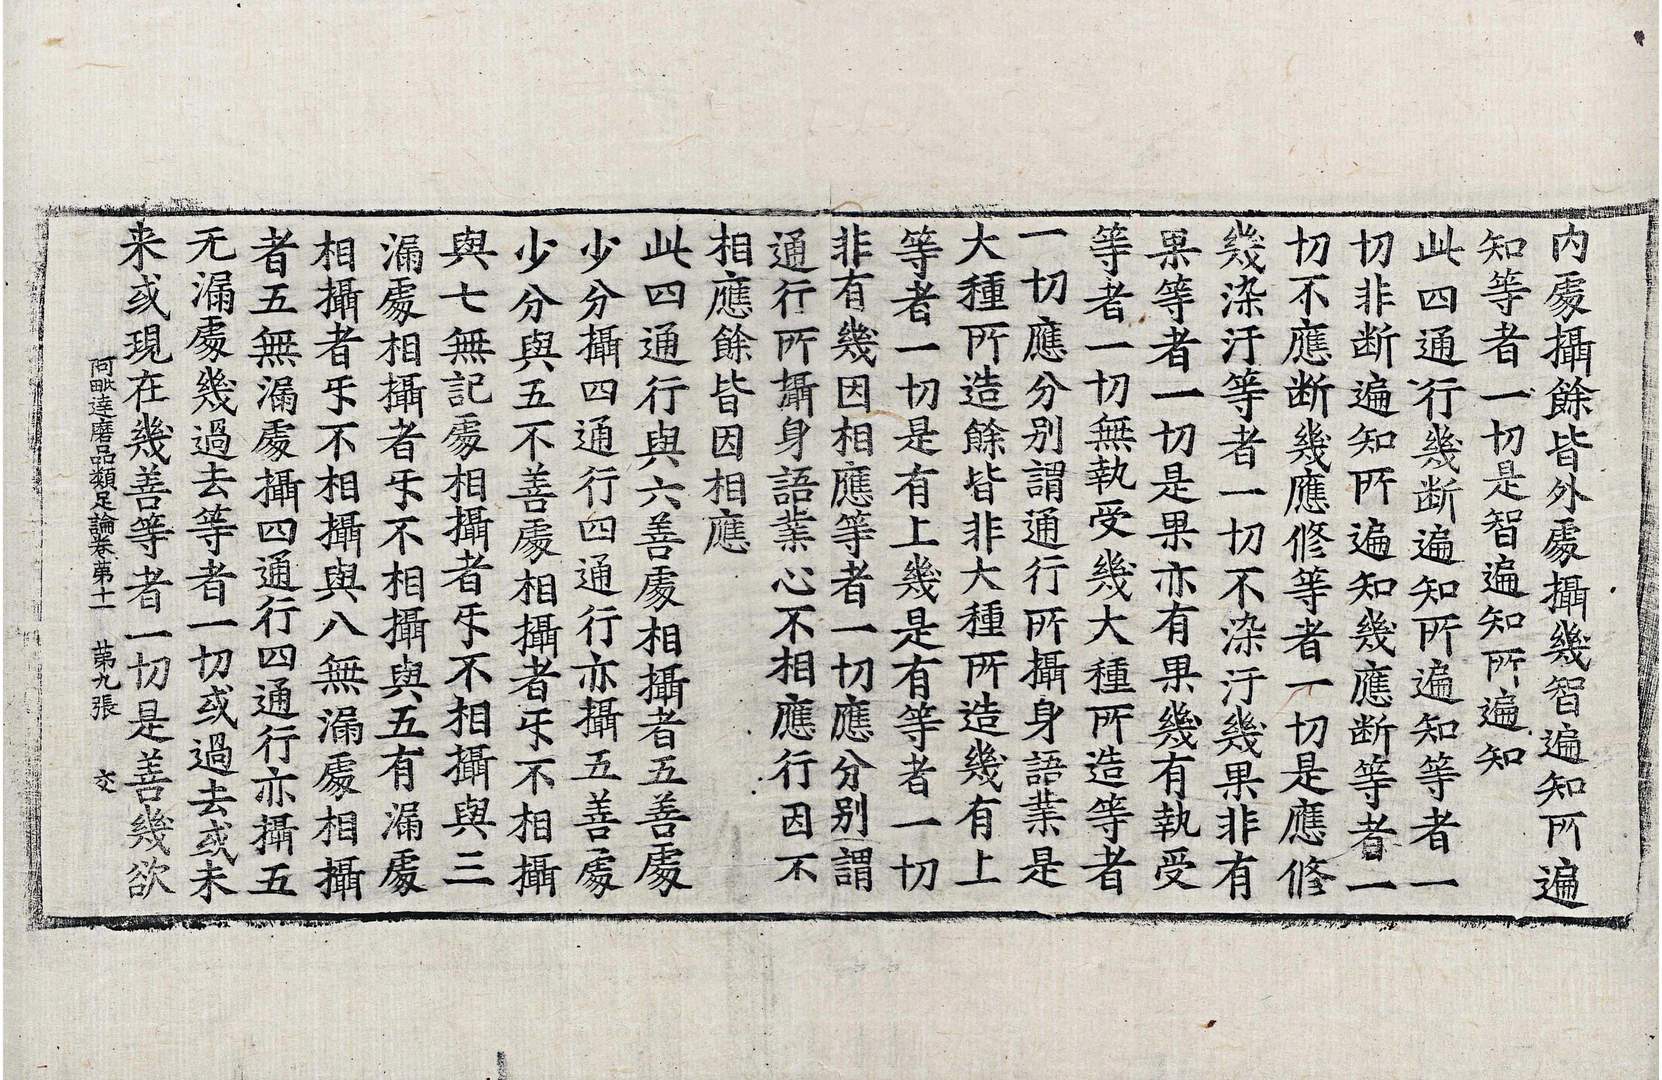 内處攝餘皆外處攝幾智遍知所遍
知等者一切是智遍知所遍知
此四通行幾断遍知所遍知等者一
切非断遍知所遍知幾應断等者一
切不應断幾應修等者一切是應修
幾染汙等者一切不染汙幾果非有
果等者一切是果亦有果幾有執受
等者一切無執受幾大種所造等者
一切應分别謂通行所攝身語業是
大種所造餘皆非大種所造幾有上
等者一切是有上幾是有等者一切
非有幾因相應等者一切應分别謂
通行所攝身語業心不相應行因不
相應餘皆因相應
此四通行與六善處相攝者五善處
少分攝四通行四通行亦攝五善處
少分與五不善處相攝者㸦不相攝
與七無記處相攝者㸦不相攝與三
漏處相攝者㸦不相攝與五有漏處
相攝者㸦不相攝與八無漏處相攝
者五無漏處攝四通行四通行亦攝五
无漏處幾過去等者一切或過去或未
来或現在幾善等者一切是善幾欲
阿毗達磨品類足論卷第十一 第九張 交